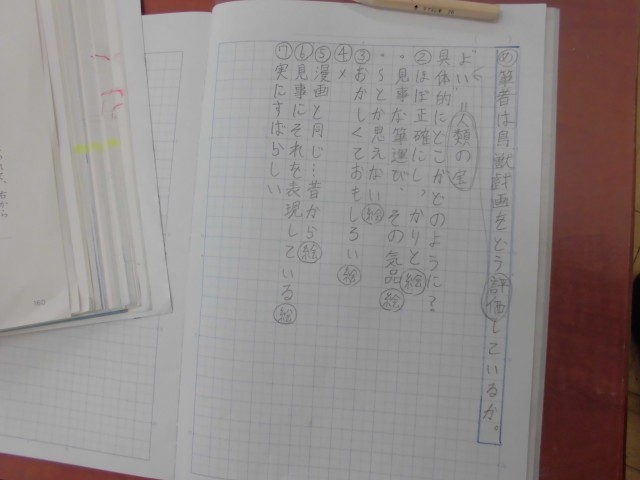 ㋱筆者は鳥獣計画をどう評価しているか。
よい=人類の宝
具体的にどこがどのように?
②ほぼ正確にしっかりと㊎絵
・見事な筆運び その気品 絵
・らとか思えない 絵
③おかしくておもしろい 絵
④〆
⑤漫画と同じ…昔から 絵
⑥見事にそれを表現している 絵
⑦実にすばらしい